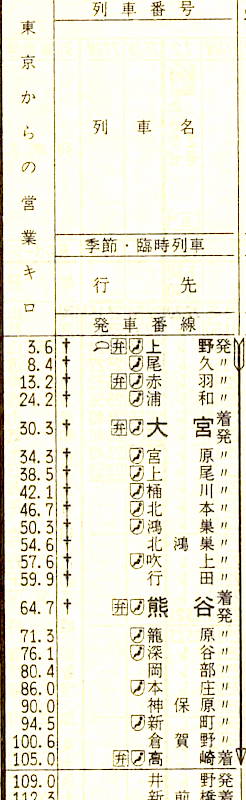 東京からの営業キロ
列車番号
列車名
季節・臨時列車
行先
発車番線
3.6 † 弁 上野 発
8.4 † 尾久 〃
13.2 † 弁 赤羽 〃
24.2 † 浦和 〃
30.3 † 弁 大宮 着発
34.3 † 宮原 〃
38.5 † 上尾 〃
42.1 † 桶川 〃
46.7 † 北本 〃
50.3 † 鴻巣 〃
54.6 † 北鴻巣 〃
57.6 † 吹上 〃
59.9 † 行田 〃
64.7 † 弁 熊谷 着発
71.3 籠原 〃
76.1 深谷 〃
80.4 岡部 〃
86.0 本庄 〃
90.0 神保原 〃
94.5 新町 〃
100.6 倉賀野 〃
105.0 弁 高崎 着
109.0 井野 発
112.3 新前橋 着